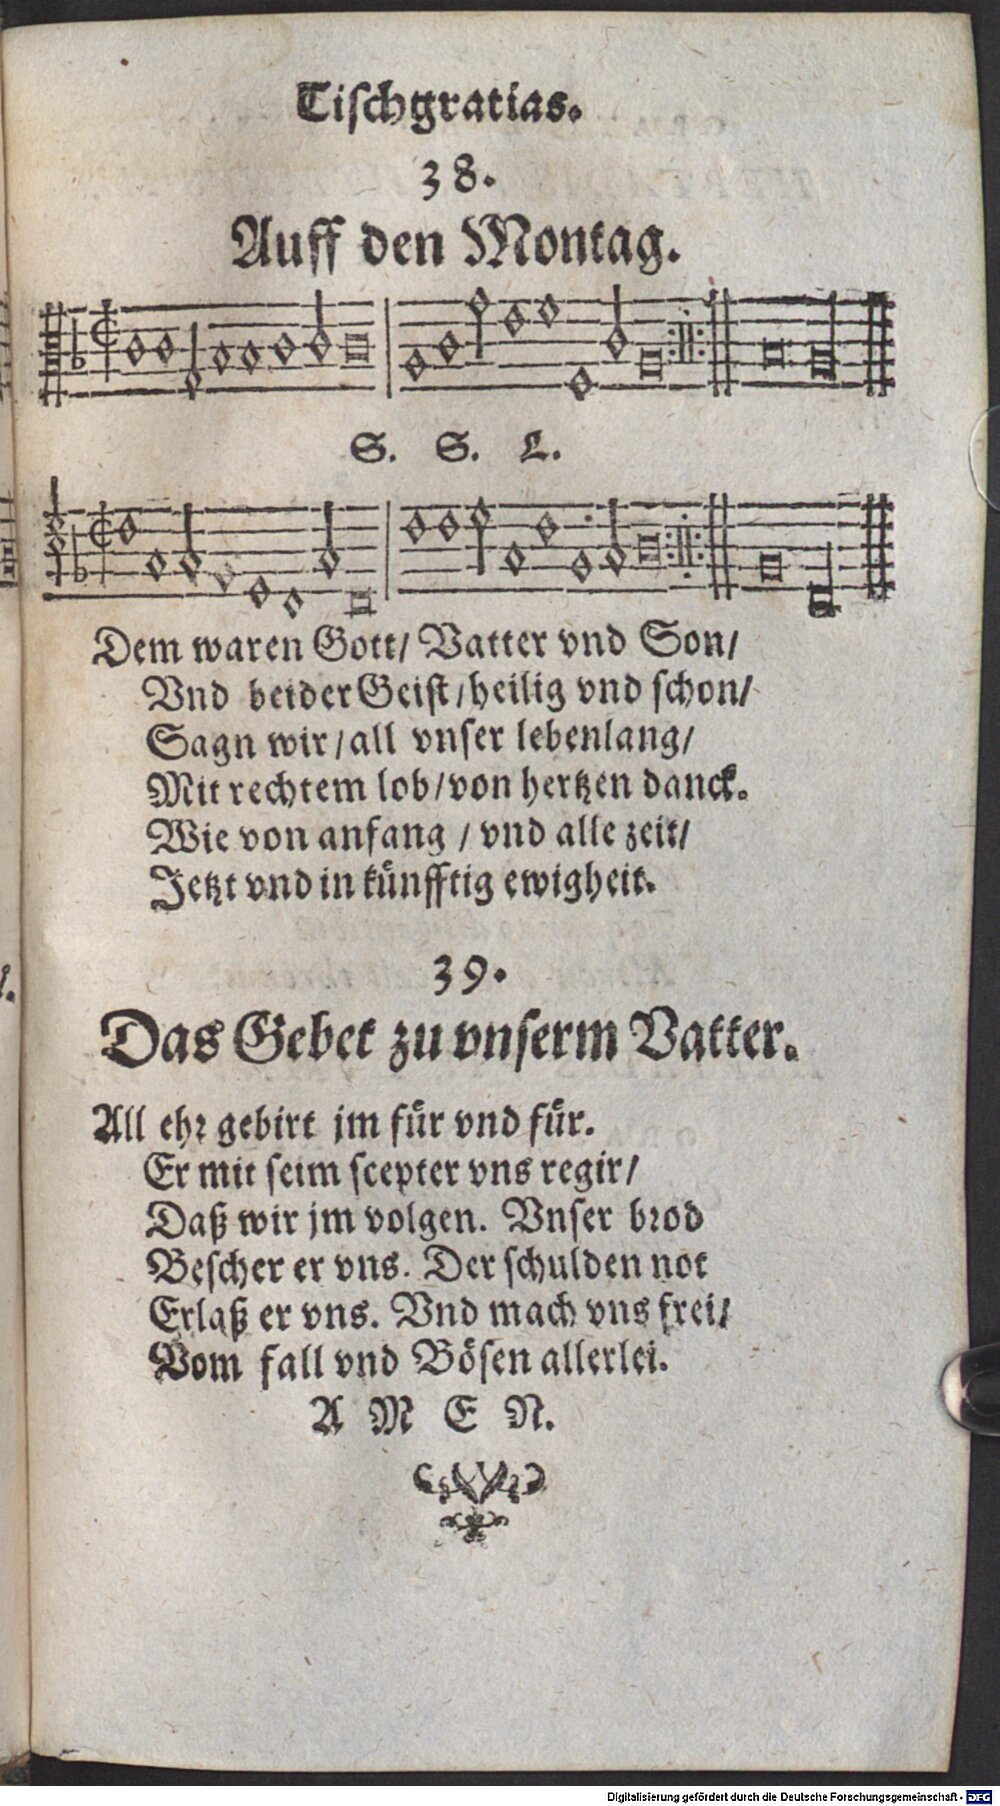 Tischgratias.
38.
Auff den Montag.
S. S. L.
Dem waren Gott/ Vatter vnd Son/
Vnd beider Geist/heilig vnd schon/
Sagn wir/all vnser lebenlang/
Mit rechtem lob/von hertzen danck.
Wie von anfang / vnd alle zeit/
Jetzt vnd in künfftig ewigheit.
39.
Das Gebet zu vnserm Vatter.
All ehr gebirt jm für vnd für.
Er mit seim scepter vns regir/
Daß wir jm volgen. Vnser brod
Bescher er vns. Der schulden not
Erlaß er vns. Vnd mach vns frei/
Vom fall vnd Bösen allerlei.
A M E N.
Digitalisierung gefördert durch die Deutsche Forschungsgemeinschaft - DFG